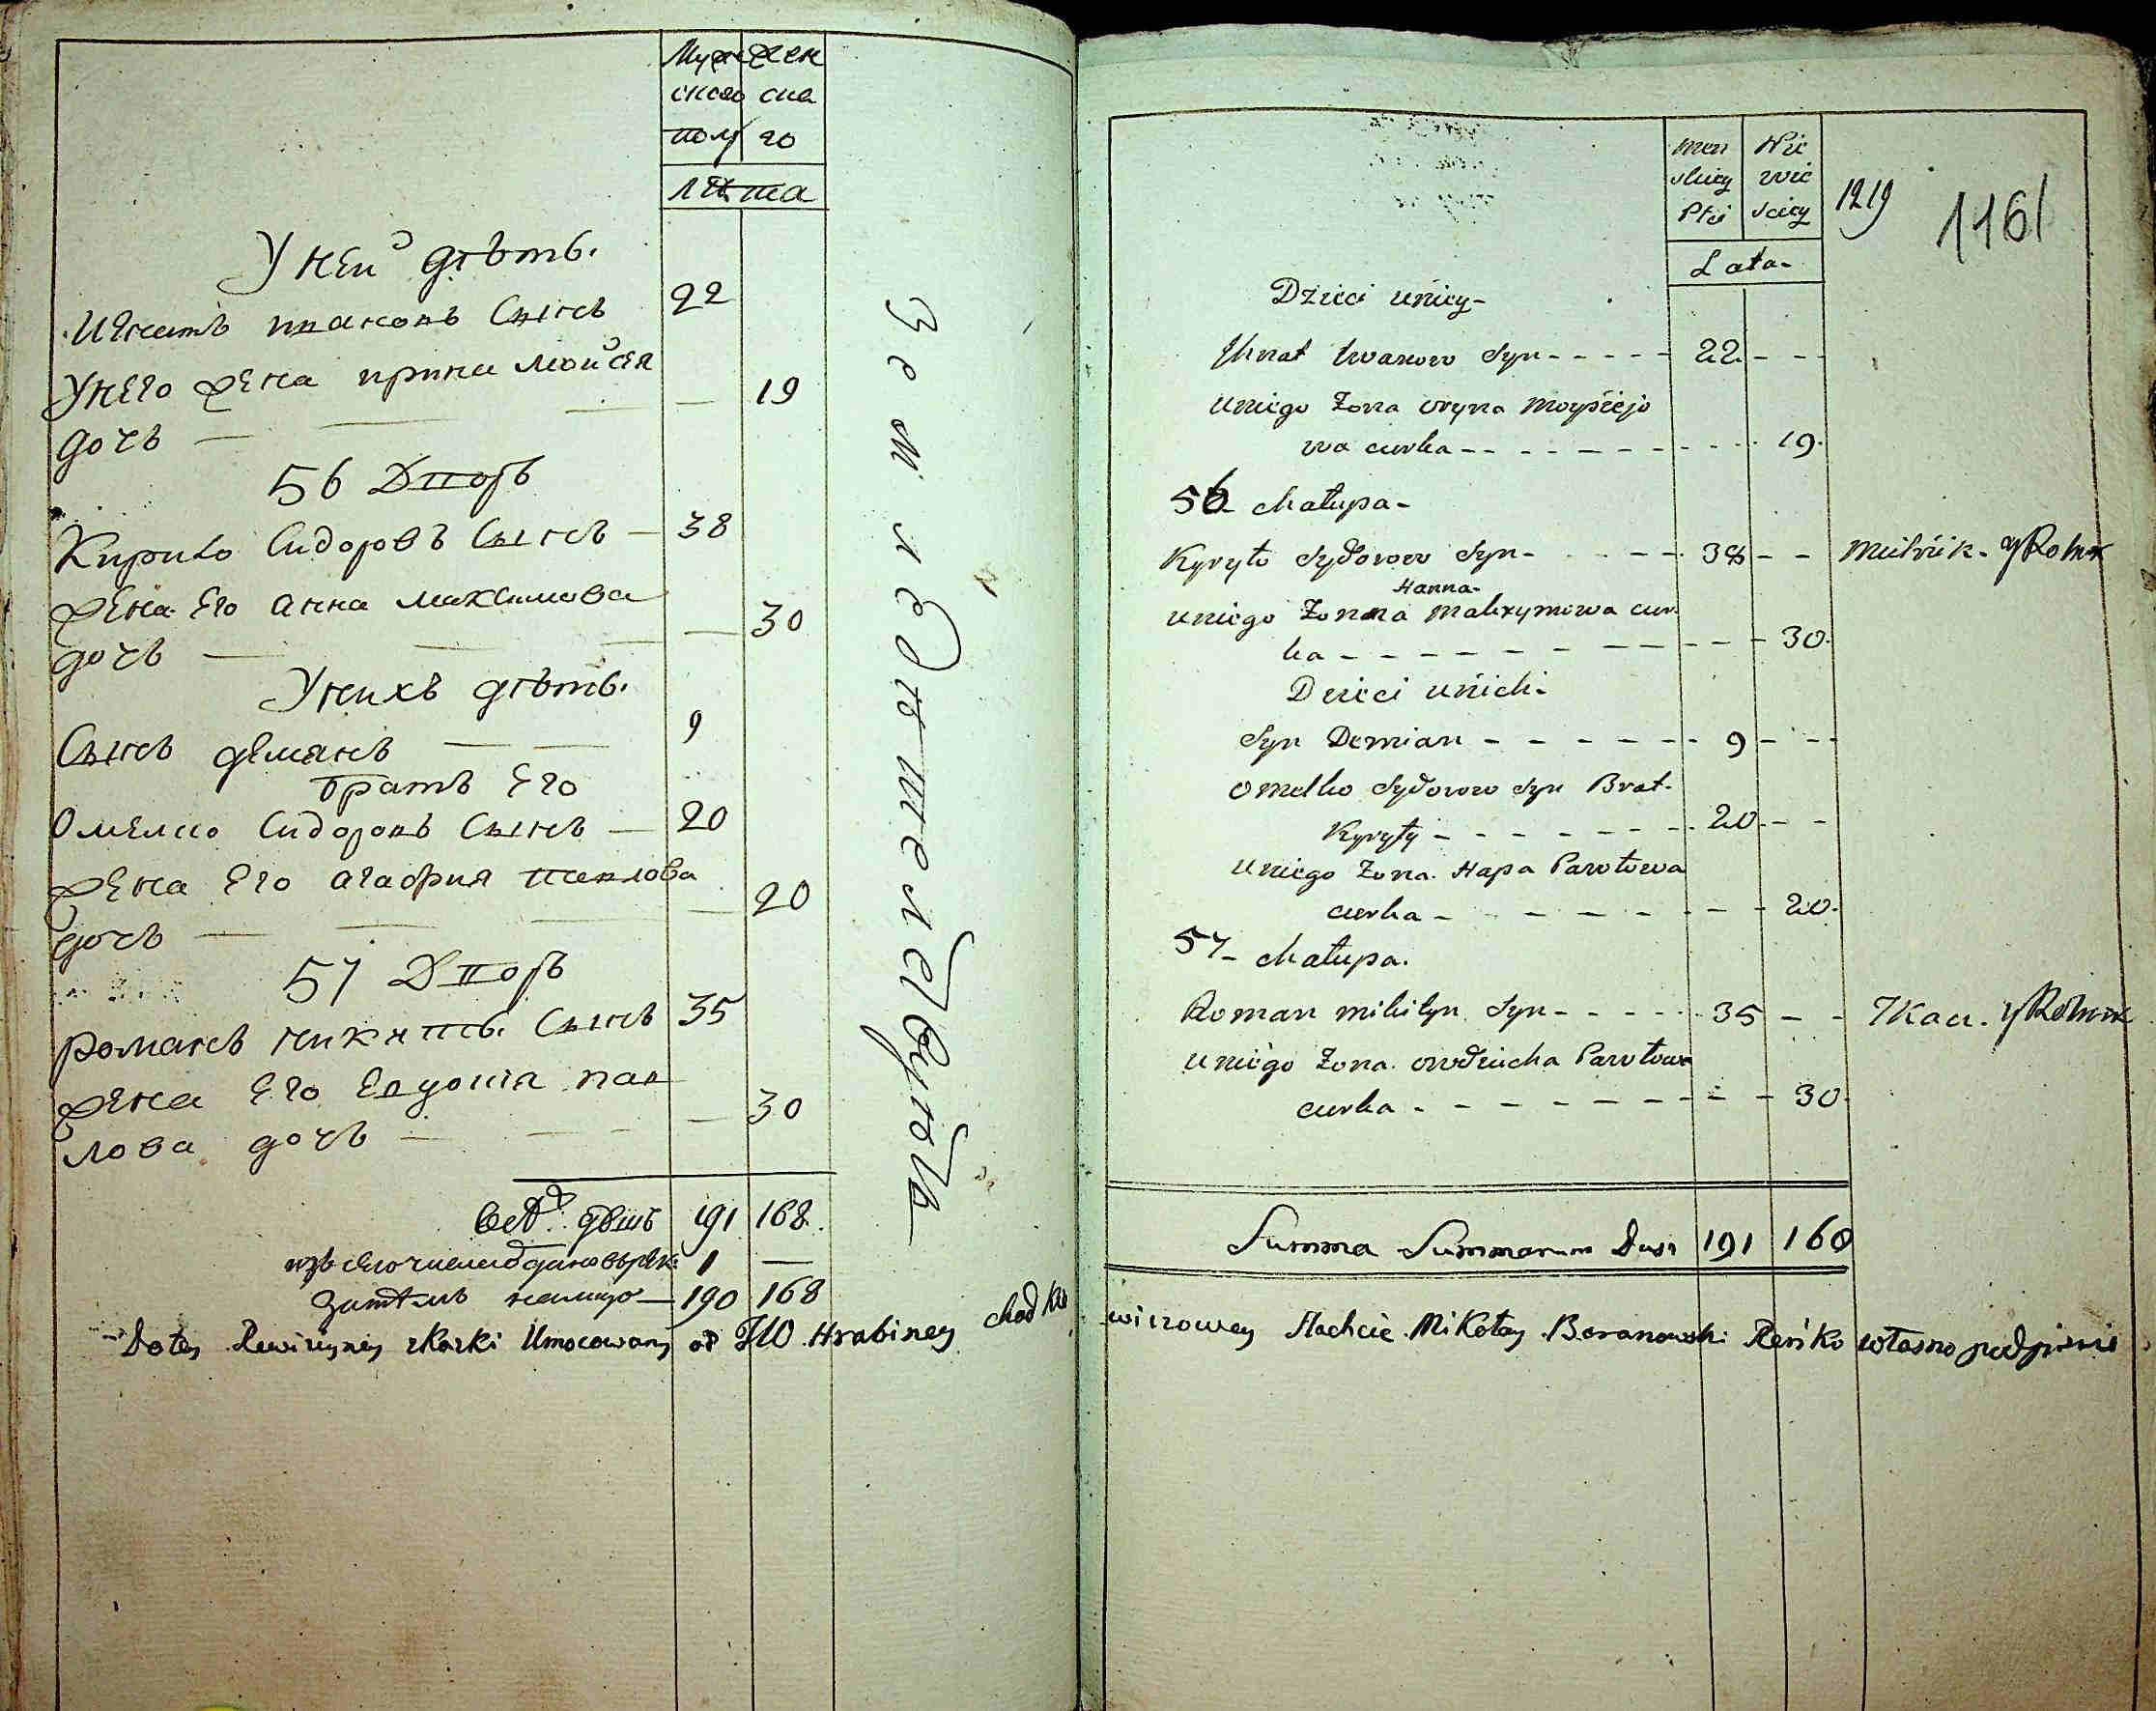 Муже жен
ского ска
полу го
лѣта
У ней дѣти.
Игнатъ ивановъ Сынъ 22
У него жена ирина мойсея
дочь — — — — 19
56 Дворъ
Кирило Сидоровъ Сынъ — 38
жена Его анна максимова
дочь — — — — 30
У нихъ дѣти.
Сынъ демянъ — — 9
братъ Его
Омелко Сидоровъ Сынъ — 20
жена Его агафия павлова
дочь — — — — 20
57 Дворъ
романъ никитъ. Сынъ 35
жена Его Евдокія пав
лова дочь — — — — 30
душъ 191 168.
1 —
затѣмъ налицо — 190 168
Земледѣтели
men Nie
skiey wie
Płci sciey
Lata.
1219
1161
Dzieci u niey-
Ihnat Iwanow Syn - - - - - 22 - - -
u niego Zona Oryna Moysiejo
wa curka - - - - - - - - - 19.
56 Chałupa-
Kyryło Sydorow Syn - - - - - 38 - - Mielnik. y Rolnik
Hanna-
u niego Zona Maxymowa cur
ka - - - - - - - - - - - 30.
Dzieci u nich-
Syn Demian - - - - - - - 9 - - -
Omelko Sydorow Syn Brat-
Kyryły - - - - - - - 20. - -
u niego Zona. Hapa Pawłowa
curka - - - - - - - - 20.
57- Chałupa.
Roman Mikityn Syn - - - - - 35 - - Tkacz. y Rolnik
u niego Zona. Owdziucha Pawłowa
curka - - - - - - - - - - 30.
Summa Summarum Dusz 191 168
Do tey Rewizyyney skarki Umocowany od JW Hrabiney Chodkie wiczowey Slachcic Mikołay Baranowski Ręką własną podpisuię